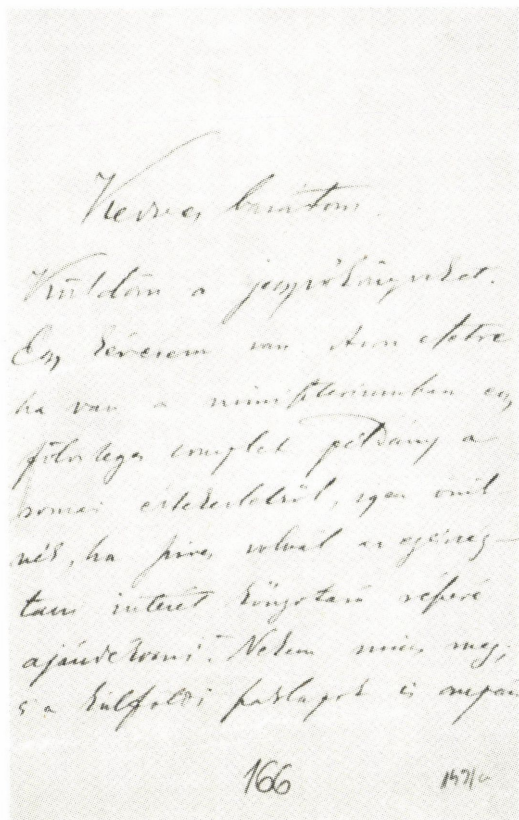 Kedves barátom.
Küldöm a jegyzőkönyveket.
Egy kérésem van. Azon esetre
ha van a ministeriumban egy
fölösleges complet példány a
római értekezletről, igen örül
nék, ha szives volnál az egészség
tani intézet könyvtára részére
ajándékozni. Nekem nincs meg,
s a külföldi szaklapok is
166